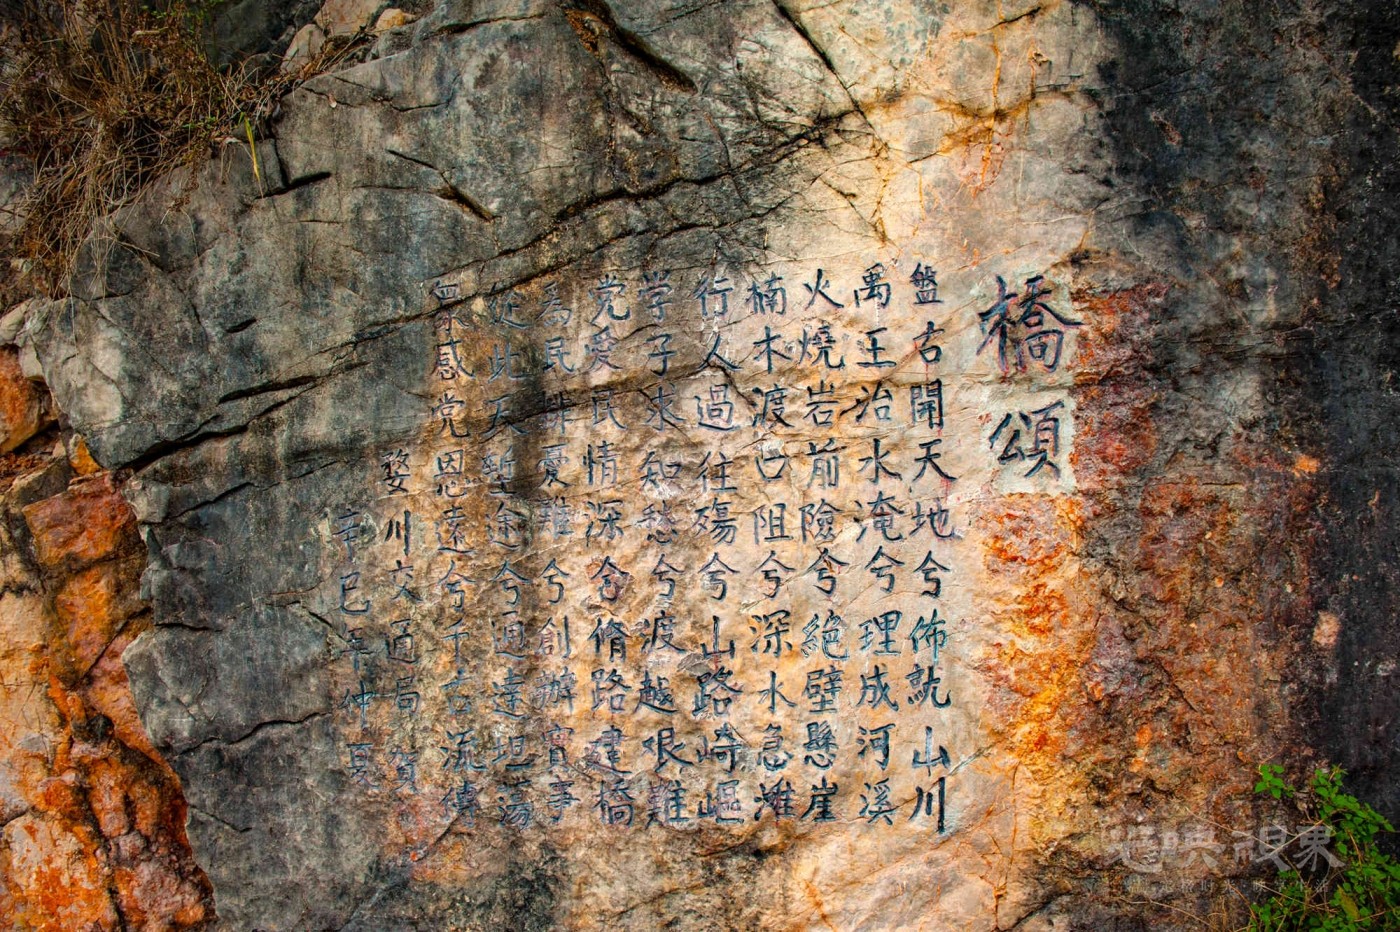 橋頌
盤古開天地兮佈就山川
禹王治水淹兮理成河溪
火燒岩前險兮絕壁懸崖
楠木渡口阻兮深水急灘
行人過往殤兮山路崎嶇
学子求知愁兮渡越艰難
党爱民情深兮脩路建橋
爲民排憂難兮創辦實事
從此天塹途兮通達坦蕩
衆感党恩遠兮千古流傳
婺川交通局賀
辛巳年仲夏